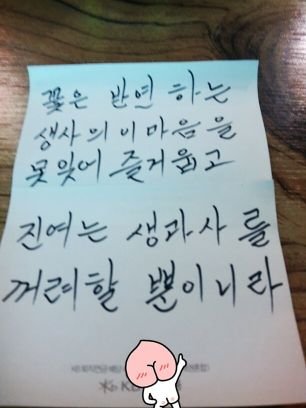 꽃은 반연 하는
생사의 이 마음을
못잊어 즐거웁고
진여는 생과사를
꺼려할 뿐이니라